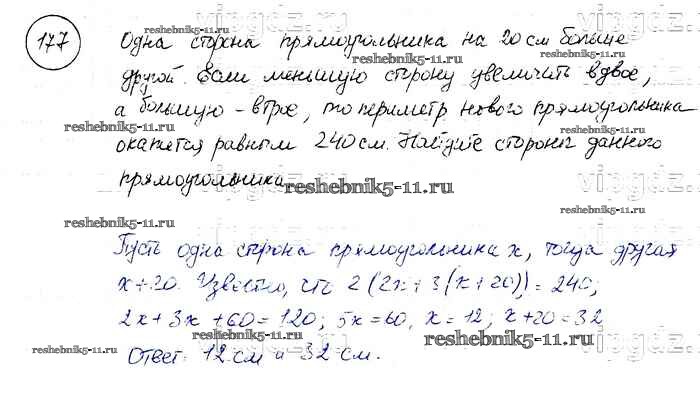 177
Одна сторона прямоугольника на 20 см больше
другой. Если меньшую сторону увеличить вдвое,
а большую - втрое, то периметр нового прямоугольника
окажется равным 240 см. Найдите стороны данного
прямоугольника
Пусть одна сторона прямоугольника x, тогда другая
x+20. Известно, что 2(2x+3(x+20))=240;
2x+3x+60=120; 5x=60, x=12; x+20=32
Ответ: 12 см и 32 см.
reshebnik5-11.ru
reshebnik5-11.ru
reshebnik5-11.ru
reshebnik5-11.ru
reshebnik5-11.ru
reshebnik5-11.ru
reshebnik5-11.ru
reshebnik5-11.ru
vipgdz.com